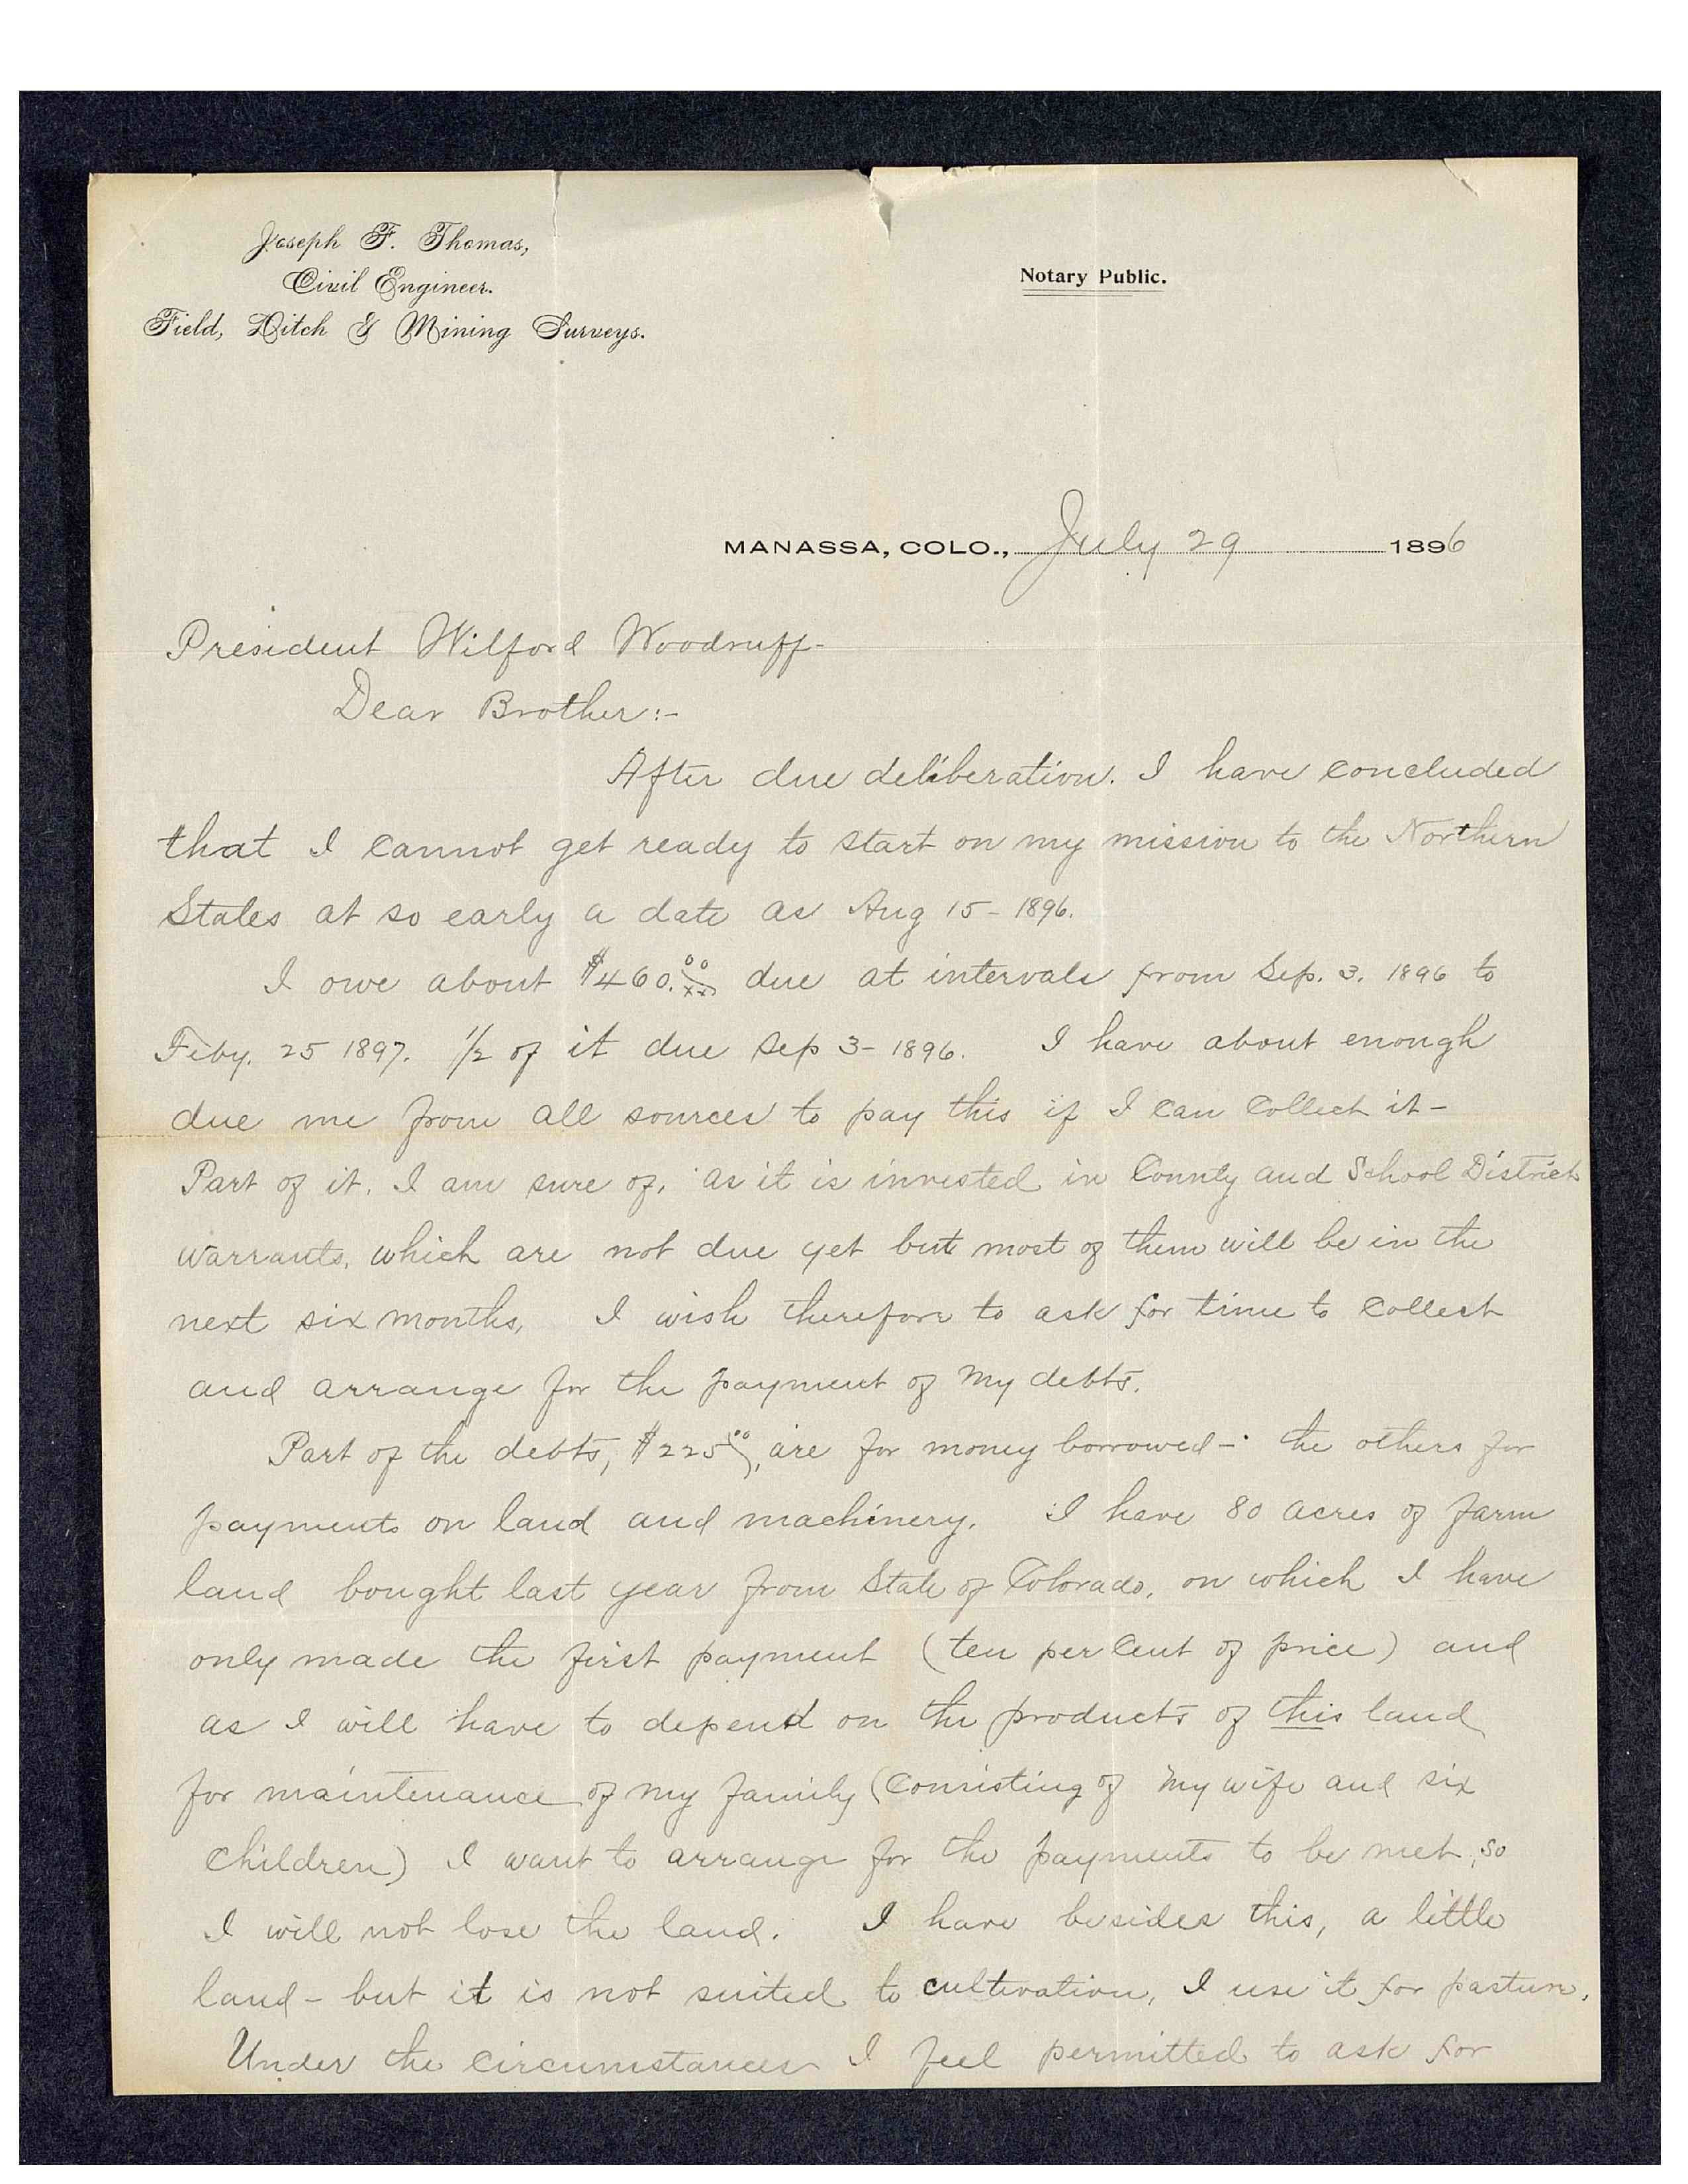 Joseph F. Thomas,
Civil Engineer.
Field, Ditch & Mining Surveys.
Notary Public.
MANASSA, COLO., July 29 1896
President Wilford Woodruff-
Dear Brother:-
After due deliberation. I have concluded
that I cannot get ready to start on my mission to the Northern
States at so early a date as Aug 15 - 1896.
I owe about $460.00/xx due at intervals from Sep. 3. 1896 to
Feby. 25 1897. 1/2 of it due Sep 3 - 1896. I have about enough
due me from all sources to pay this if I can collect it -
Part of it, I am sure of, as it is invested in County and School District
warrants, which are not due yet but most of them will be in the
next six months, I wish therefore to ask for time to collect
and arrange for the payment of my debts.
Part of the debts, $225 00, are for money borrowed - the others for
payments on land and machinery. I have 80 acres of farm
land bought last year from State of Colorado, on which I have
only made the first payment (ten per cent of price) and
as I will have to depend on the products of this land
for maintenance of my family (consisting of my wife and six
children) I want to arrange for the payments to be met, so
I will not lose the land. I have besides this, a little
land - but it is not suited to cultivation, I use it for pasture.
Under the circumstances I feel permitted to ask for